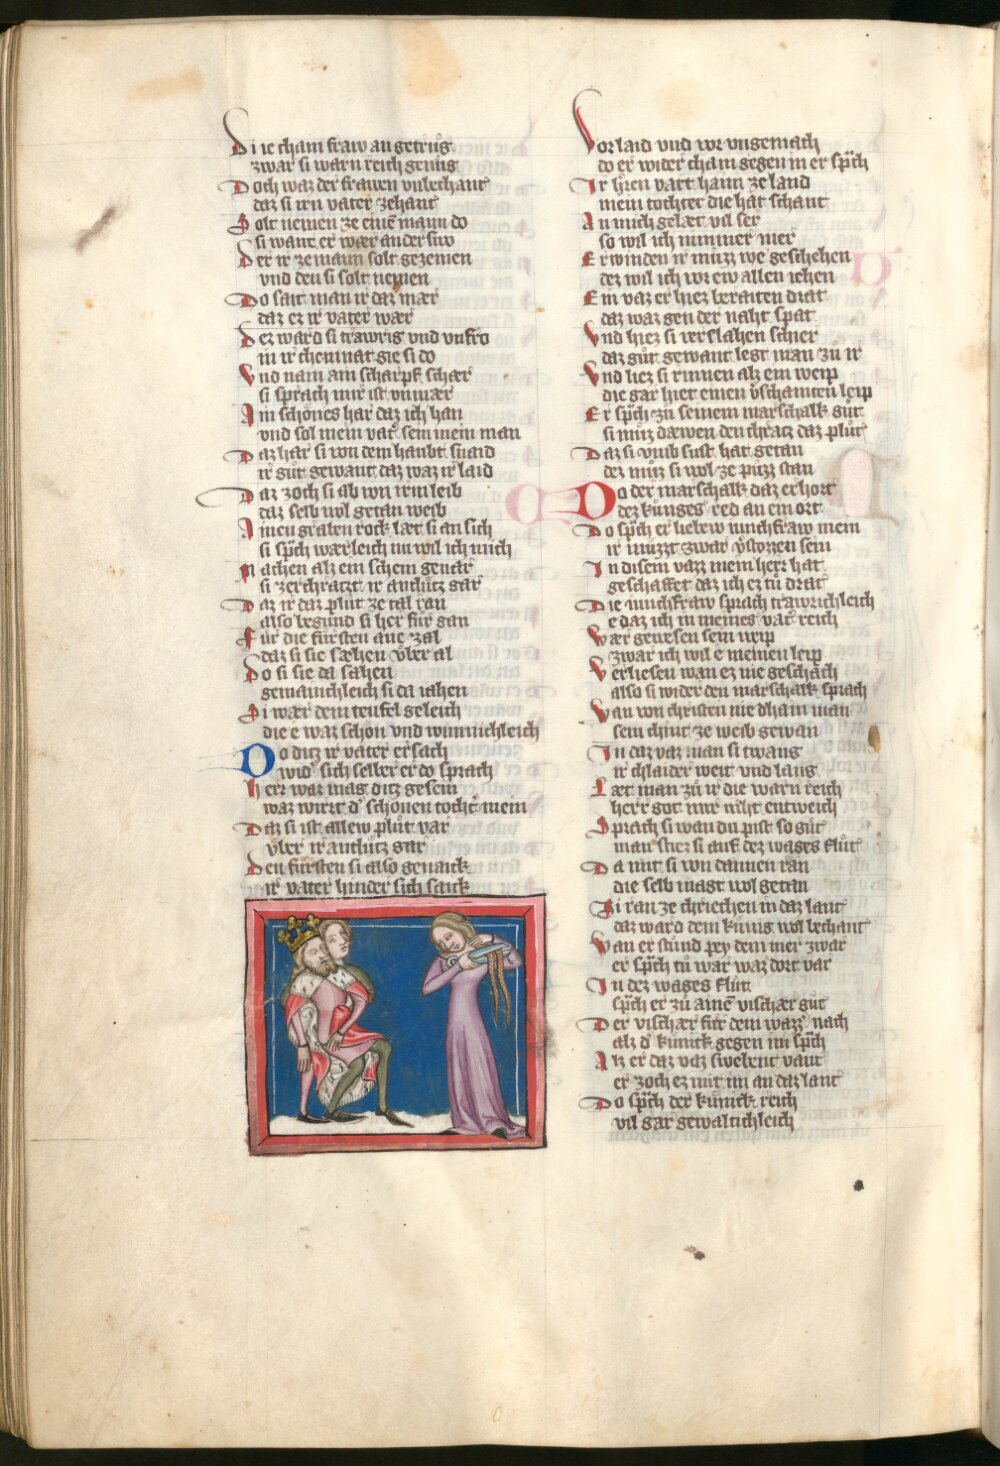 Di ie cham fraw an getrůg
zwar si warn reich genůg
Doch waz der frawen vnbechant
daz si irn vater zehant
Solt nemen ze einē mann do
si want er wær anderswo
Der ir ze mann solt gezemen
vnd den si solt nemen
Do sait man ir daz mær
daz ez ir vater wær
Dez ward si trawrig vnd vnfro
in ir cheminat gie si do
Vnd nam ain scharpf schær
si sprach mir ist vnmær
Ain schönes har daz ich han
vnd sol mein vat͛ sein mein man
Daz har si von dem haubt snaid
ir gůt gewant daz waz ir laid
Daz zoch si ab von irm leib
daz selb wol getan weib
Ainen graben rock læt si an sich
si sp͛ch wærleich nu wil ich mich
Machen alz ein schem gevar
si zerchratzt ir antlütz gar
Daz ir daz plůt ze tal ran
also begund si her für gan
Für die fürsten ane zal
daz si sie sæhen vber al
Do si sie da sahen
gemainchleich si da iahen
Si wær dem teufel geleich
die e waz schön vnd winnichleich
Do ditz ir vater ersach
wid͛ sich selber er do sprach
Herr waz mag ditz gesein
waz wirrt d͛ schönen tocht͛ mein
Daz si ist allew plůt var
vber ir antlütz gar
Den fürsten si also genaick
ir vater hinder sich saick
Vor laid vnd vor vngemach
do er wider cham gegen in er sp͛ch
Ir h͛ren vart haim ze land
mein tochter die hat schant
An mich gelæt vil ser
so wil ich nimmer mer
Erwinden ir müzz we geschehen
dez wil ich vor ew allen iehen
Ein vaz er hiez beraiten drat
daz waz gen der naht spat
Vnd hiez si verslahen schier
daz gůt gewant legt man zu ir
Vnd liez si rinnen alz ein weip
die gar hiet einen v͛schamten leip
Er sp͛ch zů seinem marschalk gůt
si můz dæwen den chratz daz plůt
Daz si vmb sust hat getan
dez můz si wol ze půzz stan
Do der marschalk daz erhort
dez künges red an ein ort
Do sp͛ch er liebew iunchfraw mein
ir müzzt zwar v͛stozzen sein
In disem vazz mein herr hat
geschaffet daz ich ez tů drat
Die iunchfraw sprach trawrichleich
e daz ich in meines vat͛ reich
Wær gewesen sein weip
zwar ich wil e meinen leip
Verliesen wan ez nie geschach
also si wider den marschalk sprach
Van von christen nie dhain man
sein chint ze weib gewan
In daz vaz man si twang
ir chlaider weit vnd lang
Læt man zů ir die warn reich
herr got mir niht entweich
Sprach si wan du pist so gůt
man stiez si auf dez wages flůt
Da mit si von dannen ran
die selb magt wol getan
Si ran ze chriechen in daz lant
daz ward dem künig wol bechant
Van er stůnd pey dem mer zwar
er sp͛ch tů war waz dort var
In dez wages flůt
sp͛ch er zů ainē vischær gůt
Der vischær für dem vazz nach
alz d͛ künick gegen im sp͛ch
Alz er daz vaz swebent vant
er zoch ez mit im an daz lant
Do sp͛ch der künick reich
vil gar gewaltichleich